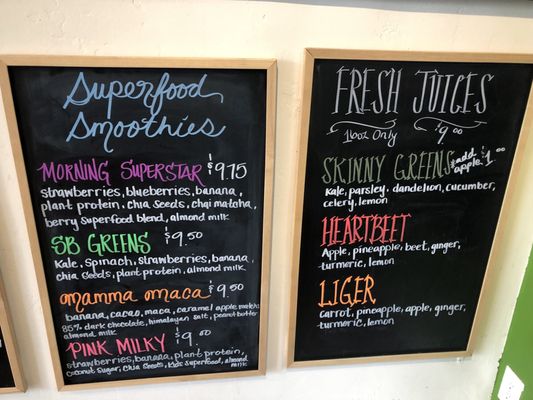 Superfood
Smoothies
MORNING SUPERSTAR $9.75
strawberries, blueberries, banana,
plant protein, chia seeds, chai matcha,
berry superfood blend, almond milk
SB GREENS $9.50
Kale, spinach, strawberries, banana,
chia seeds, plant protein, almond milk
mamma maca $9.50
banana, cacao, maca, caramel apple match
85% dark chocolate, himalayan salt, peanut butter
almond milk
PINK MILKY $9.00
strawberries, banana, plant protein,
coconut sugar, chia seeds, kids superfood, almond
milk
FRESH JUICES
16oz Only $9.00
SKINNY GREENS *add apple $1.00
Kale, parsley, dandelion, cucumber,
celery, lemon
HEARTBEET
Apple, pineapple, beet, ginger,
turmeric, lemon
LIGER
carrot, pineapple, apple, ginger,
turmeric, lemon